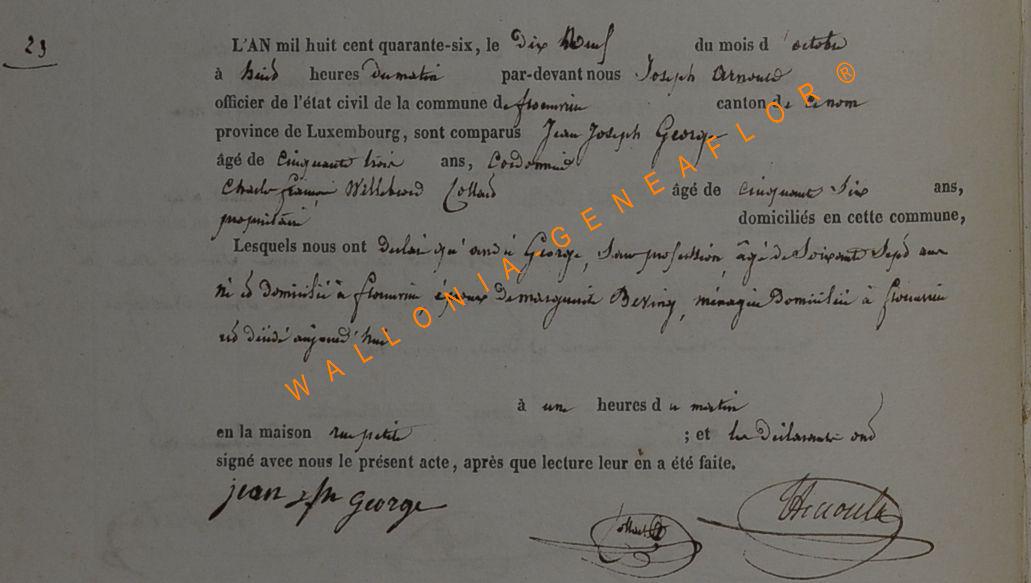 23
L'AN mil huit cent quarante-six, le dix Neuf du mois d'octobre
à huit heures du matin par-devant nous Joseph Arnould
officier de l'état civil de la commune de florenville canton de ce nom
province de Luxembourg, sont comparus Jean Joseph George
âgé de cinquante trois ans, Cordonnier
Charles françois Willebrord Collard âgé de cinquante Six ans,
propriétaire domiciliés en cette commune,
Lesquels nous ont déclaré qu'andré George, Sans profession, âgé de Soixante Sept ans
né et domicilié à florenville, époux de marguerite Beving, ménagère Domiciliée à florenville
est décédé aujourd'hui
à une heures du matin
en la maison rue petite ; et les déclarants ont
signé avec nous le présent acte, après que lecture leur en a été faite.
jean jph George
Collard
WALLONIA GENEAFLOR ®